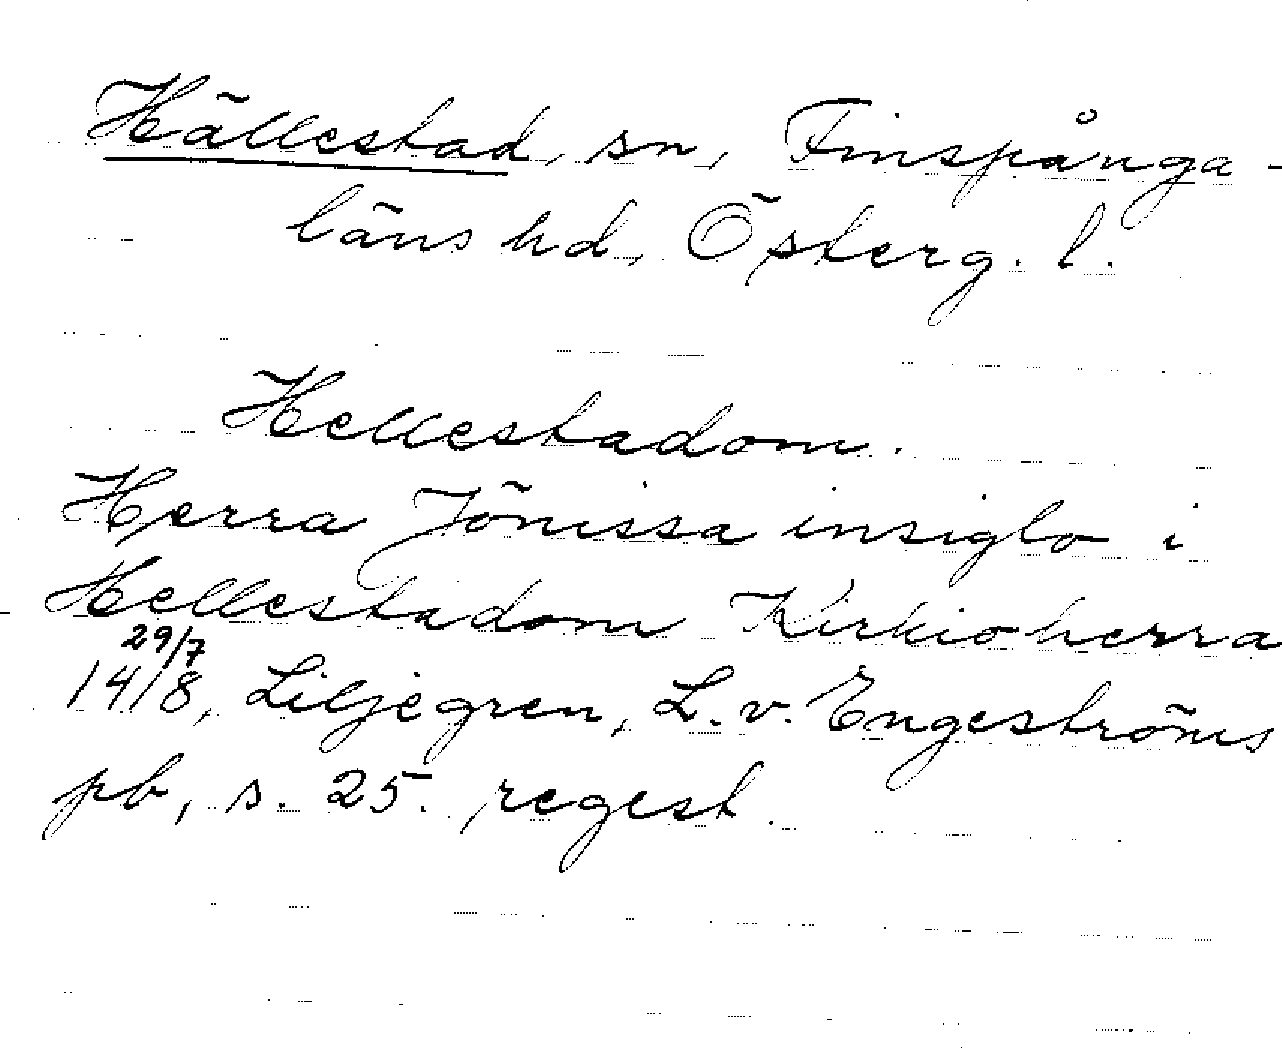 Hällestad, sn, Finspånga-
läns hd, Österg. l.
Hellestadom.
Herra Jönissa insiglo i
Hellestadom Kirkioherra
29/7
1418, Liljegren, L. v. Engeströms
pb, s. 25. regest.